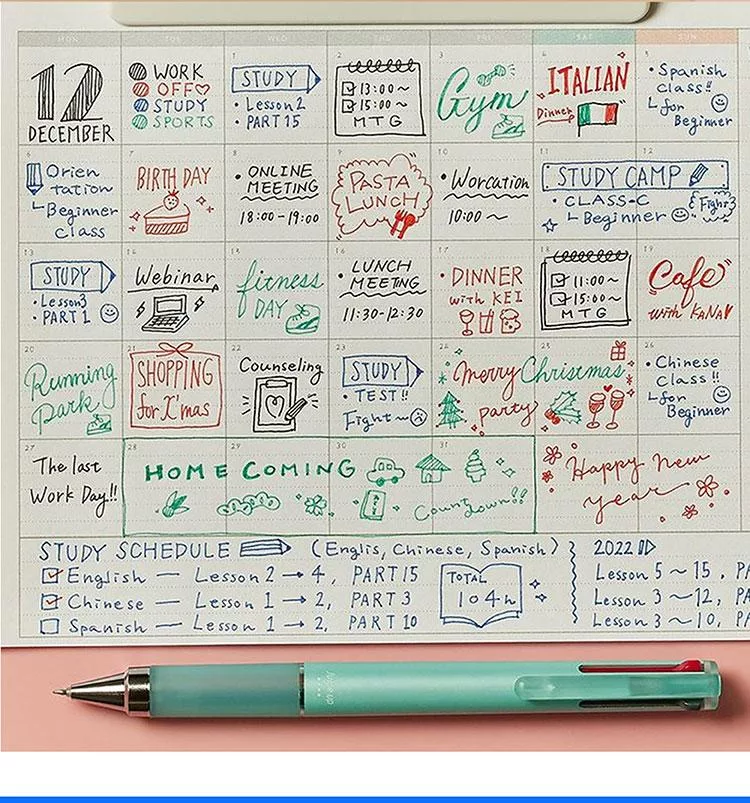 MON TUE WED THU FRI SAT SUN
12
DECEMBER
WORK
OFF♡
STUDY
SPORTS
1
STUDY
• Lesson2
• PART15
2
13:00~
15:00~
MTG
3
Gym
4
ITALIAN
Dinner
5
• Spanish
class!!
for
Beginner
6
Orien
tation
Beginner
class
7
BIRTHDAY
8
• ONLINE
MEETING
18:00-19:00
9
PASTA
LUNCH
10
• Worcation
10:00 ~
11
12
STUDY CAMP
• CLASS-C
Beginner
13
STUDY
• Lesson3
• PART 1
14
Webinar
15
fitness
DAY
16
• LUNCH
MEETING
11:30-12:30
17
• DINNER
with KEI
18
11:00~
15:00~
MTG
19
Cafe
with KANA
20
Running
Park
21
SHOPPING
for X'mas
22
Counseling
23
STUDY
• TEST!!
Fight~
24
25
Merry Christmas
party
26
• Chinese
class!!
for
Beginner
27
The last
Work Day!!
28
29
30
31
HOME COMING
Count down!!
Happy new
year
STUDY SCHEDULE (Englis, Chinese, Spanish)
English — Lesson 2 → 4, PART 15
Chinese — Lesson 1 → 2, PART 3
Spanish — Lesson 1 → 2, PART 10
TOTAL
104h
2022
Lesson 5 ~ 15, PA
Lesson 3 ~ 12, PA
Lesson 3 ~ 10, P